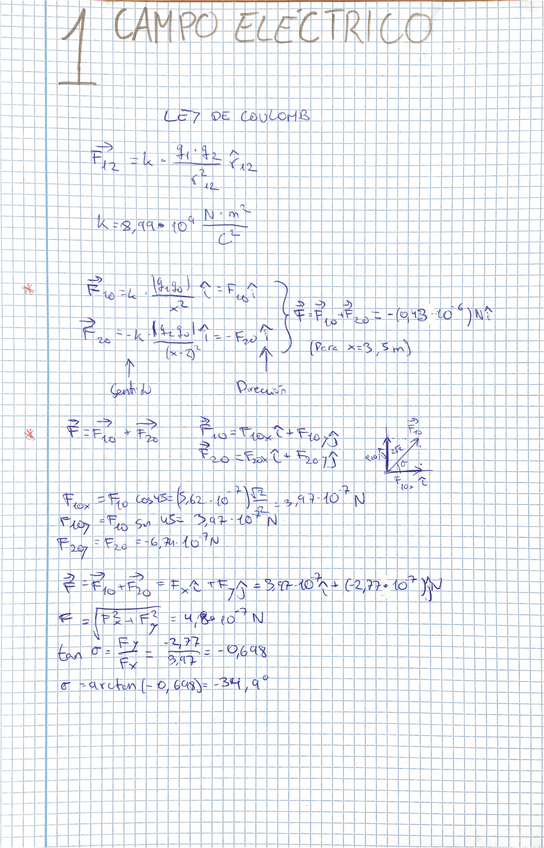 1 CAMPO ELÉCTRICO
LEY DE COULOMB
F⃗12 = k · q1·q2 / r²12 r̂12
k = 8,99·10⁹ N·m² / C²
* F⃗10 = k · |q1q0| / x² î = F10 î
F⃗20 = -k · |q2q0| / (x-2)² î = -F20 î
} F⃗ = F⃗10 + F⃗20 = -(0,43·10⁻⁶) N î
(Para x=3,5m)
Sentido Dirección
* F⃗ = F⃗10 + F⃗20 F⃗10 = F10x î + F10y ĵ
F⃗20 = F20x î + F20y ĵ
F⃗10
2√2
σ
F10x î
F10x = F10 cos45 = (5,62·10⁻⁷) √2/2 = 3,97·10⁻⁷ N
F10y = F10 sin 45 = 3,97·10⁻⁷ N
F20y = F20 = -6,74·10⁻⁷ N
F⃗ = F⃗10 + F⃗20 = Fx î + Fy ĵ = 3,97·10⁻⁷ î + (-2,77·10⁻⁷) ĵ N
F = √(F²x + F²y) = 4,8·10⁻⁷ N
tan σ = Fy / Fx = -2,77 / 3,97 = -0,698
σ = arctan(-0,698) = -34,9°